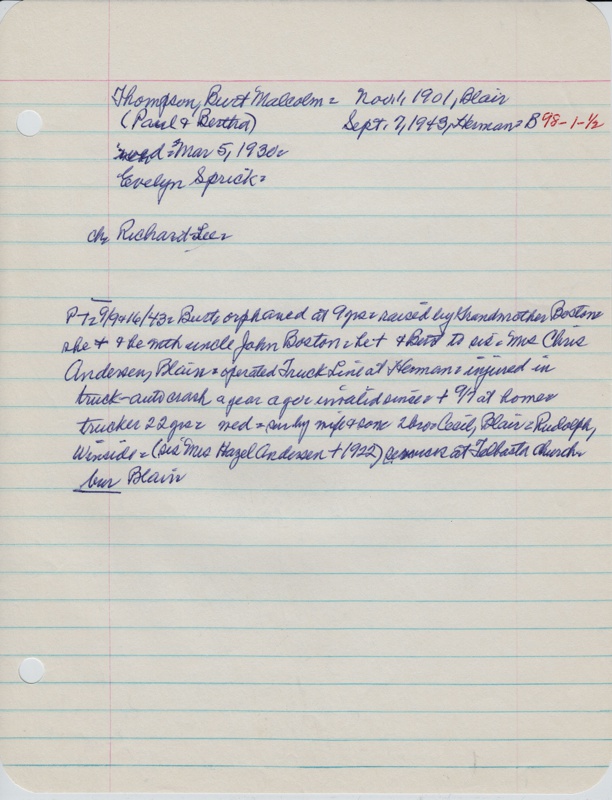 Thompson, Burt Malcolm = Nov 1, 1901, Blair
(Paul & Bertha) Sept. 7, 1943, Herman = B 98-1-½
Mar 5, 1930 =
Evelyn Sprick =
ch Richard Lee =
P-T = 9/9 & 16/43 = Burt, orphaned at 9 yrs = raised by Grandmother Boston
she + & he with uncle John Boston = he + & Burt to sis = Mrs Chris
Andersen, Blair = operated Truck Line at Herman = injured in
truck-auto crash a year ago = invalid since = + 9/7 at home =
trucker 22 yrs = wed = sur by wife & son = 2 bro = Cecil, Blair = Rudolph,
Winside = (sis Mrs Hazel Andersen + 1922) services at Telbasta church =
bur Blair